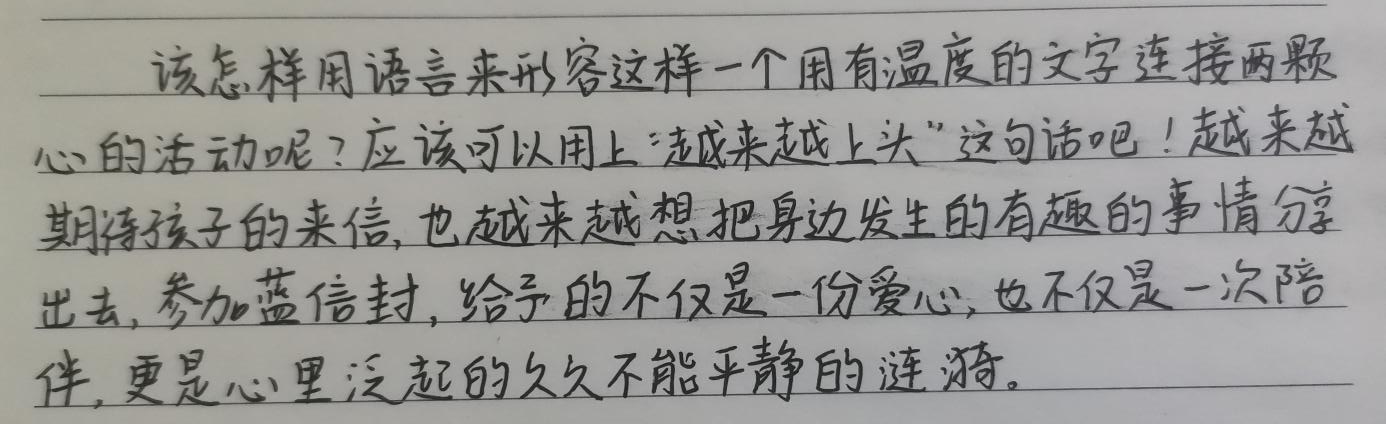 该怎样用语言来形容这样一个用有温度的文字连接两颗
心的活动呢？应该可以用上“越来越上头”这句话吧！越来越
期待孩子的来信，也越来越想把身边发生的有趣的事情分享
出去，参加蓝信封，给予的不仅是一份爱心，也不仅是一次陪
伴，更是心里泛起的久久不能平静的涟漪。